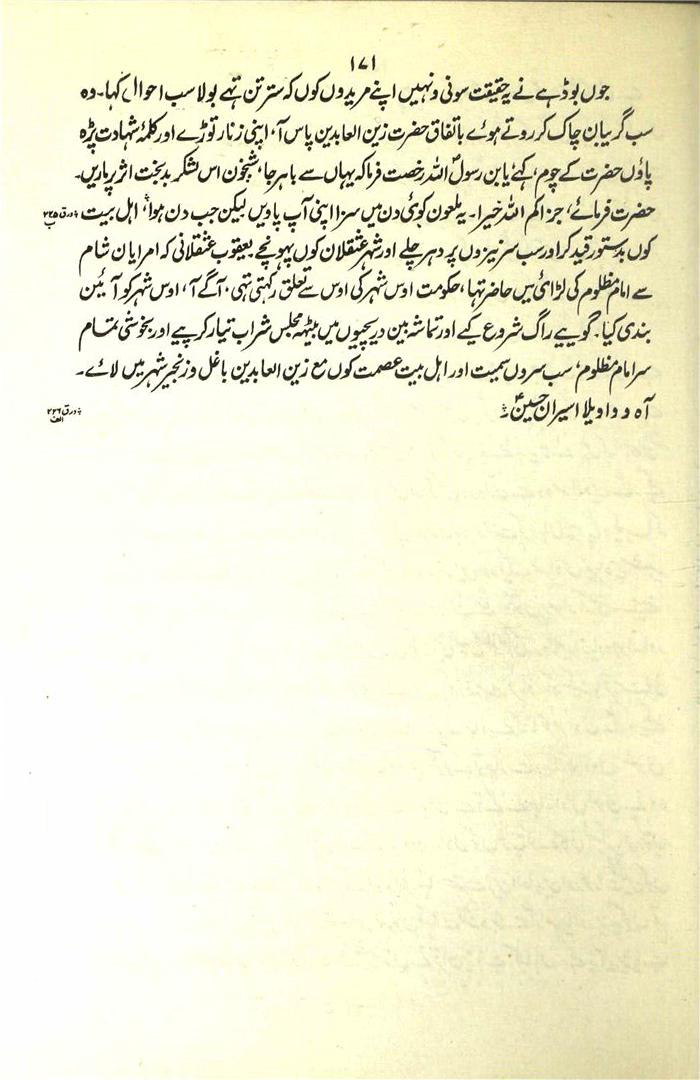 ۱۷۱
جوں بوڈہے نے یہ حقیقت سونی و نہیں اپنے مریدوں کوں کہ ستر تن تہے بولا سب احوال کہا۔ وہ
سب گریبان چاک کر روتے ہوئے باتفاق حضرت زین العابدین پاس آ، اپنی زنار توڑے اور کلمۂ شہادت پڑہ
پاؤں حضرت کے چوم، کہے یا بن رسول اللہ رخصت فرما کہ یہاں سے باہر جا، شبخون اس لشکر بدبخت اثر پر ماریں۔
حضرت فرمائے، جزاکم اللہ خیرا۔ یہ ملعون کوئی دن میں سزا اپنی آپ پاویں لیکن جب دن ہوا، اہل بیت
ورق ۲۲۵ ب
کوں بدستور قید کر اور سب سر نیزوں پر دہر چلے اور شہر عسقلان کوں پہونچے یعقوب عسقلانی کہ امرایان شام
سے امام مظلوم کی لڑائی میں حاضر تہا، حکومت اوس شہر کی اوس سے تعلق رکہتی تہی، آگے آ، اوس شہر کو آئین
بندی کیا۔ گویے راگ شروع کیے اور تماشہ بین دریچیوں میں بیٹہہ مجلس شراب تیار کرپیے اور بخوشی تمام
سر امام مظلوم، سب سروں سمیت اور اہل بیت عصمت کوں مع زین العابدین باغل و زنجیر شہر میں لائے۔
آہ و واویلا اسیران حسینؑ۔
ورق ۲۲۶ الف